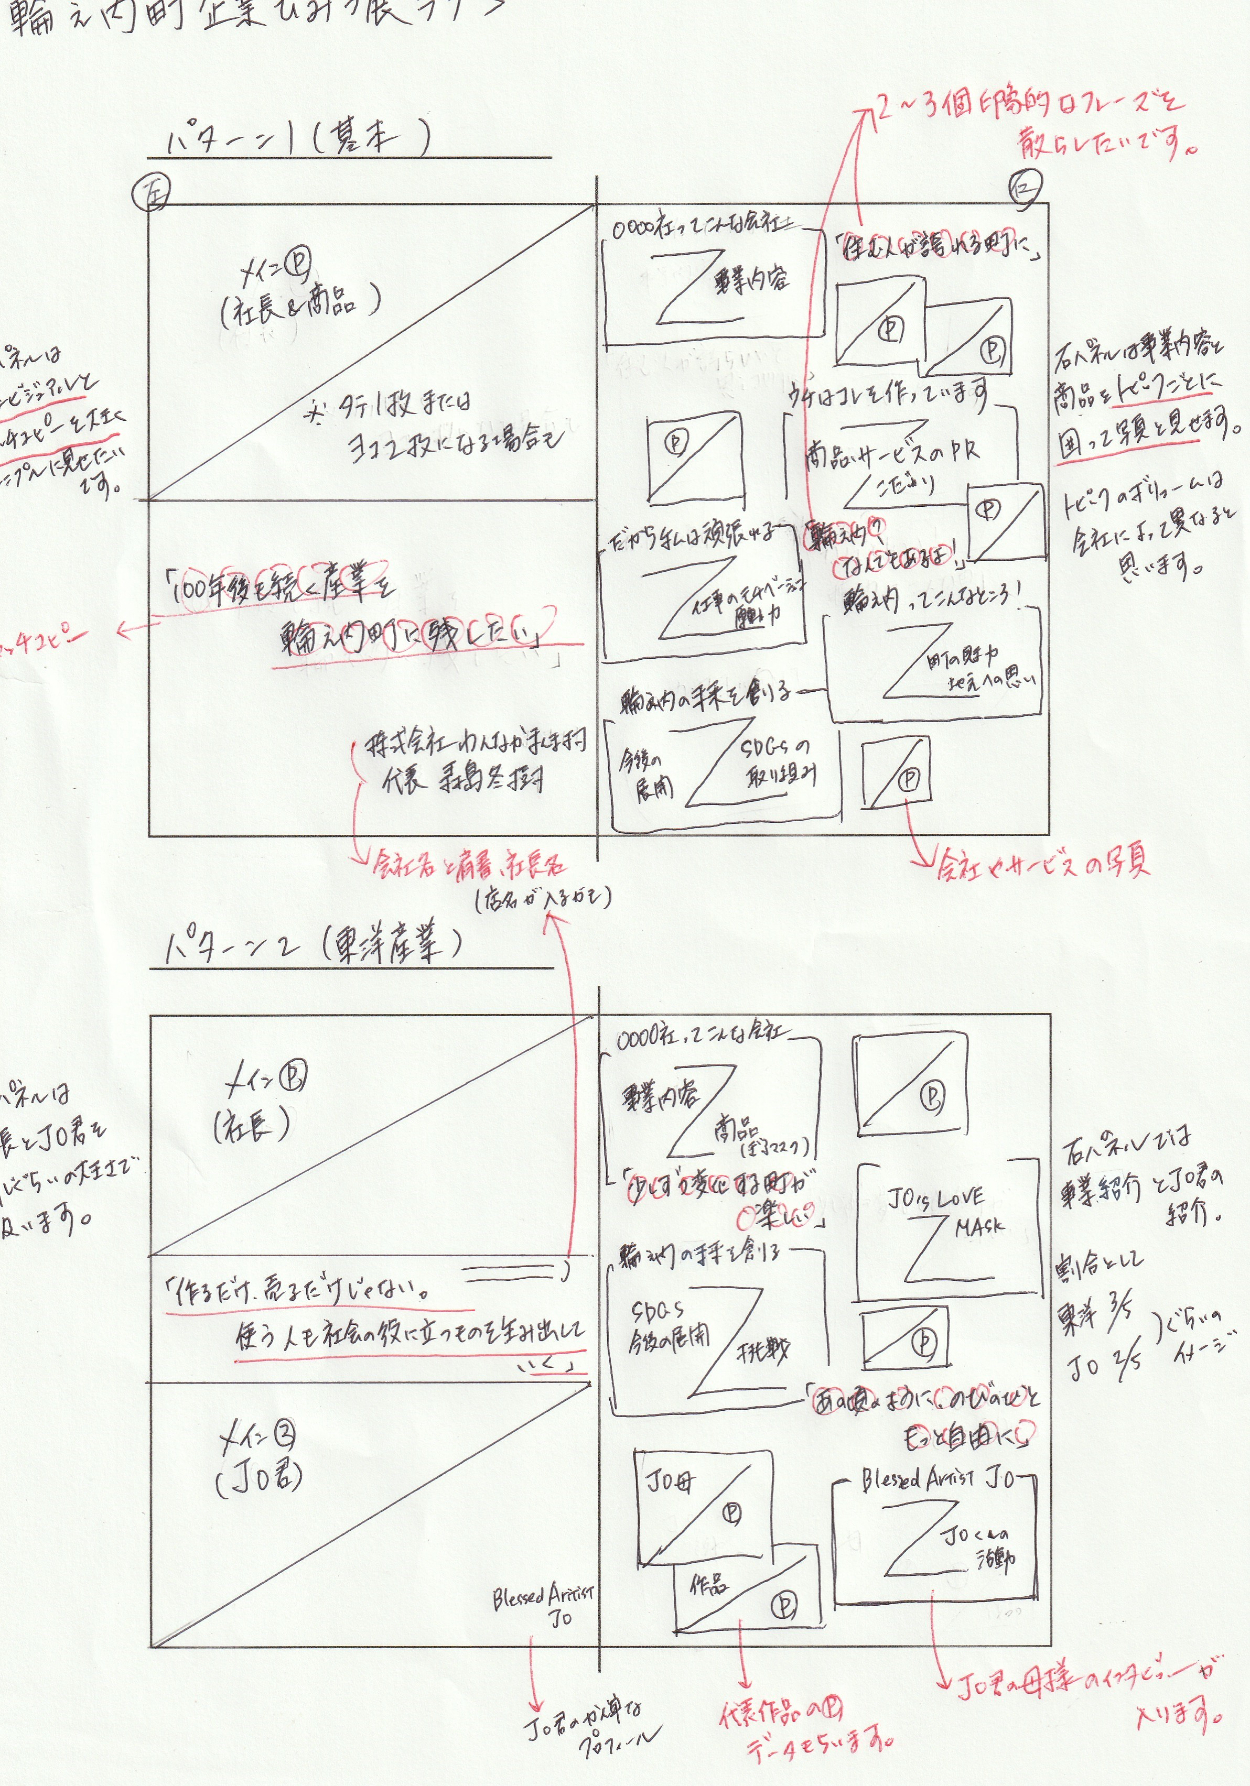 輪之内町企業ひみつ展ラフ
パターン1(基本)
2〜3個印象的なフレーズを
散らしたいです。
左
右
メインⓅ
(社長&商品)
※タテ1枚または
ヨコ2枚になる場合も
パネルは
ビジュアルと
チコピーを大きく
シンプルに見せたい
です。
「100年後も続く産業を
輪之内町に残したい」
ッチコピー
株式会社わんなかまんま村
代表 森島冬樹
会社名と肩書、社長名
(店名が入るかも)
〇〇〇〇社ってこんな会社
事業内容
「住む人が誇れる町に」
Ⓟ
Ⓟ
ウチはコレを作っています
Ⓟ
商品・サービスのPR
こだわり
Ⓟ
だから私は頑張れる
仕事のモチベーション
原動力
「輪之内?
なんでもあるよ!」
輪之内ってこんなところ!
町の魅力
地元への思い
輪之内の未来を創る
今後の
展開
SDGSの
取り組み
Ⓟ
会社やサービスの写真
右パネルは事業内容と
商品をトピックごとに
囲って写真と見せます。
トピックのボリュームは
会社によって異なると
思います。
パターン2(東洋産業)
メインⓅ
(社長)
パネルは
長とJO君を
じぐらいの大きさで
扱います。
「作るだけ、売るだけじゃない。
使う人も社会の役に立つものを生み出して
いく」
メイン②
(JO君)
Blessed Aritist
JO
JO君のかんたんな
プロフィール
〇〇〇〇社ってこんな会社
事業内容
商品
Ⓟ
「少しずつ変化する町が
楽しい」
JO's LOVE
MASK
輪之内の未来を創る
SDGS
今後の展開
挑戦
Ⓟ
「あの頃のように、のびのびと
もっと自由に」
JO母
Ⓟ
作品
Ⓟ
Blessed Artist JO
JOくんの
活動
代表作品のⓅ
データもらいます。
JO君の母様のインタビューが
入ります。
右パネルでは
事業紹介とJO君の
紹介。
割合として
東洋 3/5
JO 2/5
ぐらいの
イメージ